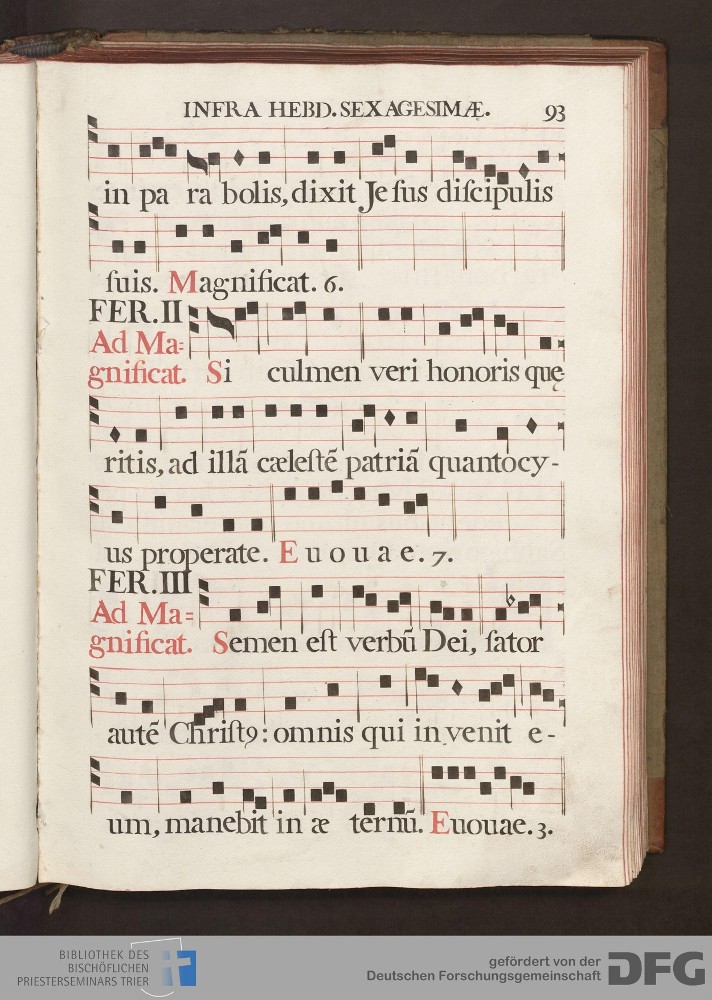 INFRA HEBD. SEXAGESIMÆ. 93
in pa ra bolis, dixit Jeſus diſcipulis
ſuis. Magnificat. 6.
FER. II
Ad Ma=
gnificat. Si culmen veri honoris quę
ritis, ad illã cæleſtẽ patriã quantocy-
us properate. E u o u a e. 7.
FER. III
Ad Ma=
gnificat. Semen eſt verbũ Dei, ſator
autẽ Chriſtꝰ: omnis qui invenit e-
um, manebit in æ ternũ. Euouae. 3.
BIBLIOTHEK DES
BISCHÖFLICHEN
PRIESTERSEMINARS TRIER
gefördert von der
Deutschen Forschungsgemeinschaft
DFG